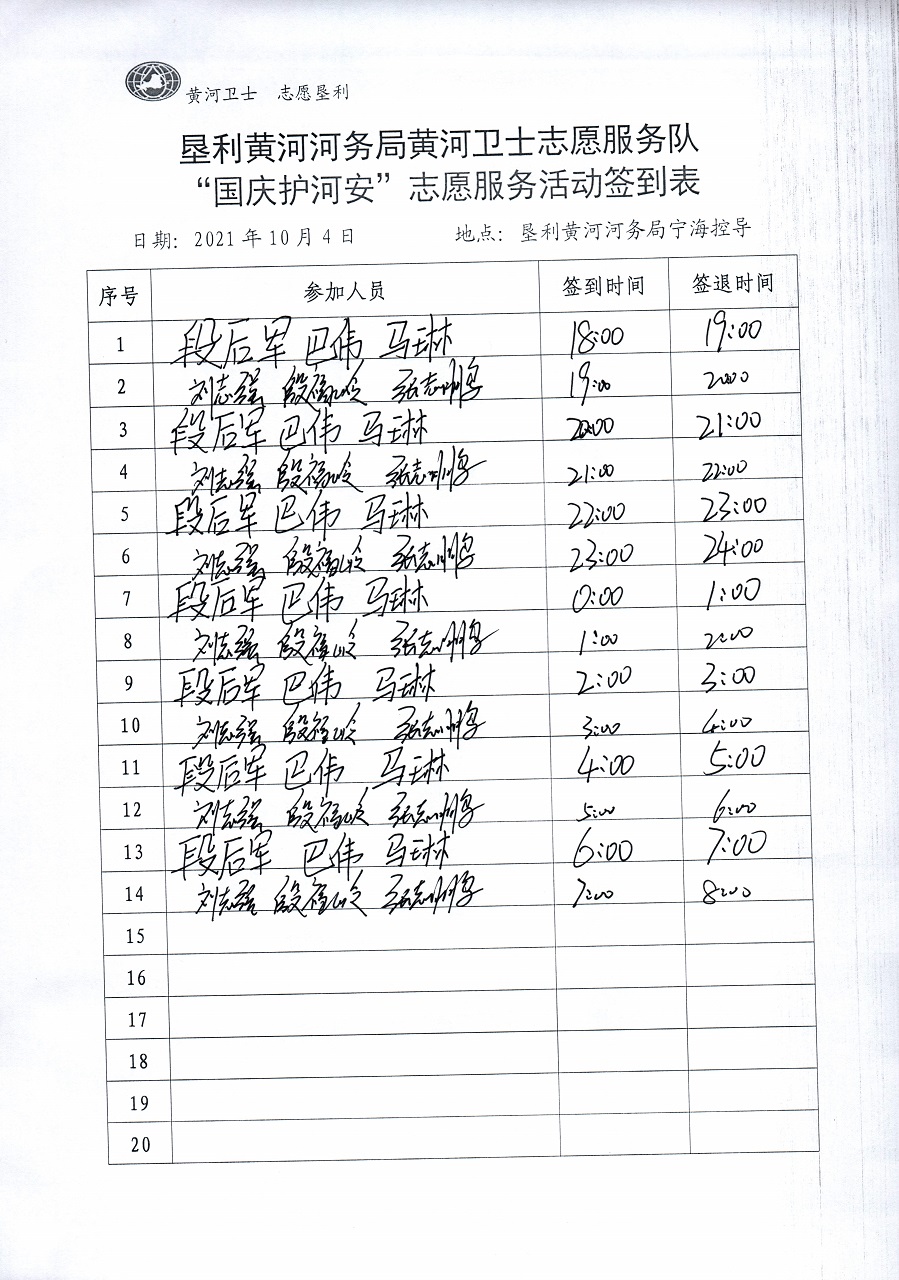 黄河卫士 志愿垦利
垦利黄河河务局黄河卫士志愿服务队
“国庆护河安”志愿服务活动签到表
日期：2021年10月4日 地点：垦利黄河河务局宁海控导
序号 参加人员 签到时间 签退时间
1 段后军 巴伟 马琳 18:00 19:00
2 刘志强 段福岭 张志刚 19:00 20:00
3 段后军 巴伟 马琳 20:00 21:00
4 刘志强 段福岭 21:00 22:00
5 段后军 巴伟 马琳 22:00 23:00
6 刘志强 段福岭 23:00 24:00
7 段后军 巴伟 马琳 0:00 1:00
8 刘志强 段福岭 1:00 2:00
9 段后军 巴伟 马琳 2:00 3:00
10 刘志强 段福岭 3:00 4:00
11 段后军 巴伟 马琳 4:00 5:00
12 刘志强 段福岭 5:00 6:00
13 段后军 巴伟 马琳 6:00 7:00
14 刘志强 段福岭 7:00 8:00
15
16
17
18
19
20